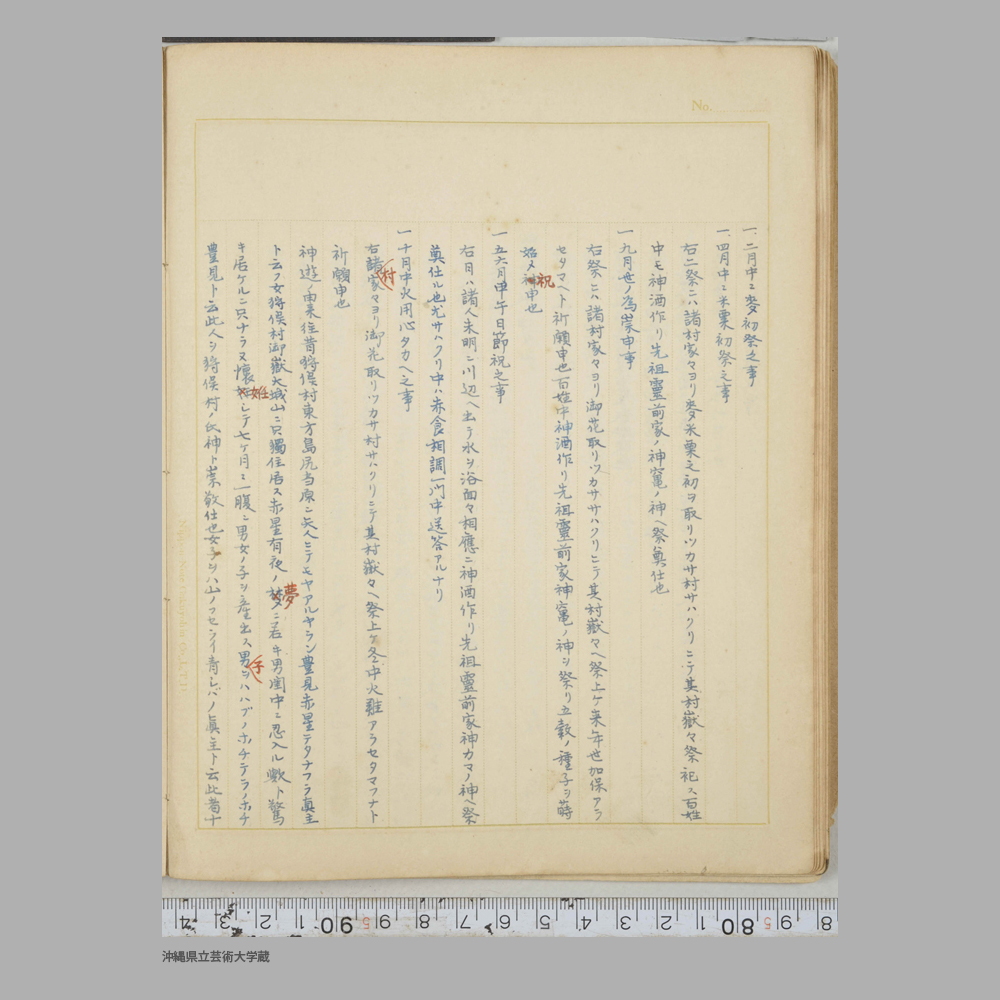 No.
一、二月中ニ麦初祭之事
一、四月中ニ米粟初祭之事
右二祭ニハ諸村家々ヨリ麦米粟之初ヲ取リツカサ村サハクリニテ其村嶽々祭祀ス百姓
中モ神酒作リ先祖霊前家ノ神竈ノ神ヘ祭奠仕也
一九月世ノ為崇申事
右祭ニハ諸村家々ヨリ御花取リツカササハクリニテ其村嶽々ヘ祭上ケ来年世加保アラ
セタマヘト祈願申也百姓中神酒作リ先祖霊前家神竈ノ神ヲ祭リ五穀ノ種子ヲ蒔
始メ神申也
祝
一五六月甲午日節祝之事
右日ハ諸人未明ニ川辺ヘ出テ水ヲ浴面々相應ニ神酒作リ先祖霊前家神カマノ神ヘ祭
奠仕ル也尤サハクリ中ハ赤食相調一門中送答アルナリ
一十月中火用心タカヘ之事
右諸家々ヨリ御花取リツカサ村サハクリニテ其村嶽々ヘ祭上ケ冬中火難アラセタマフナト
村
祈願申也
神遊ノ由来往昔狩俣村東方島尻当原ニ天人ニテモヤアルヤラン豊見赤星テタナフラ真主
ト云フ女狩俣村御嶽大城山ニ只獨住居ス赤星有夜ノ ニ若キ男閨中ニ忍入ル歟ト驚
夢
キ居ケルニ只ナラヌ懐 シテ七ケ月ニ一腹ニ男女ノ子ヲ産出ス男ヲハハブノホチテラノホチ
妊
子
豊見ト云此人ヲ狩俣村ノ氏神ト崇敬仕也女子ヲハ山ノフセライ青シバノ真主ト云此者十
4 3 2 1 90 9 8 7 6 5 4 3 2 1 80 9 8
沖縄県立芸術大学蔵